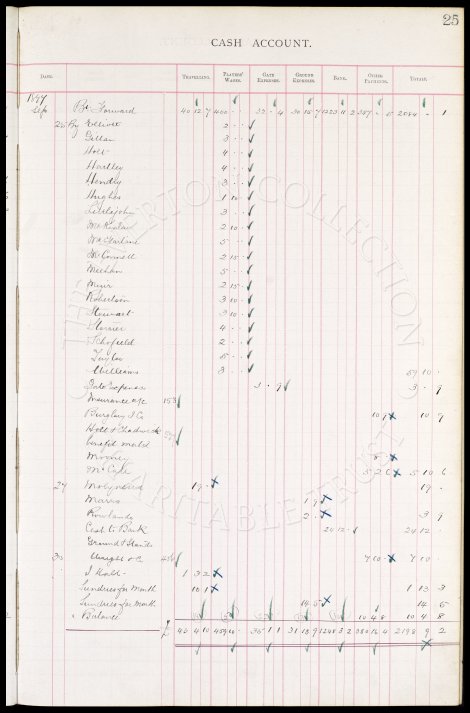 25
CASH ACCOUNT.
DATE. TRAVELLING. PLAYERS' WAGES. GATE EXPENSES. GROUND EXPENSES. BANK. OTHER PAYMENTS. TOTALS.
1897
Bt. Forward 40 12 7 400 32 4 1223 11 2 2084 1
25 By Elliott 2
Gillan 3
Holt 4
Hartley 4
Handley 3
Hughes 1 10
Littlejohn 3
2 10
McFarlane 5
McConnell 2 15
Meehan 5
Muir 2 15
Robertson 3 10
Stewart 3 10
Storrier 4
Schofield 2
Taylor 5
Williams 3 59 10
Gate Expenses 3 9 3 9
Insurance a/c 153
Burglary I Co 10 9 10 9
Holt & Chadwick
benefit match
5 2 6 5 10 6
27 Molyneux 19 19
Marrs 1 9
Rowlands 2 3 9
Cash to Bank 24 12 24 12
Ground & Stands
30 Wright & Co 7 10 7 10
J Holt 1 3 2
Sundries for Month 10 1 1 13 3
Sundries for Month 14 5 14 5
Balance 10 4 8 10 4 8
£ 43 4 10 459 10 35 1 1 31 15 9 1248 3 2 380 14 4 2198 9 2
THE EVERTON COLLECTION
CHARITABLE TRUST